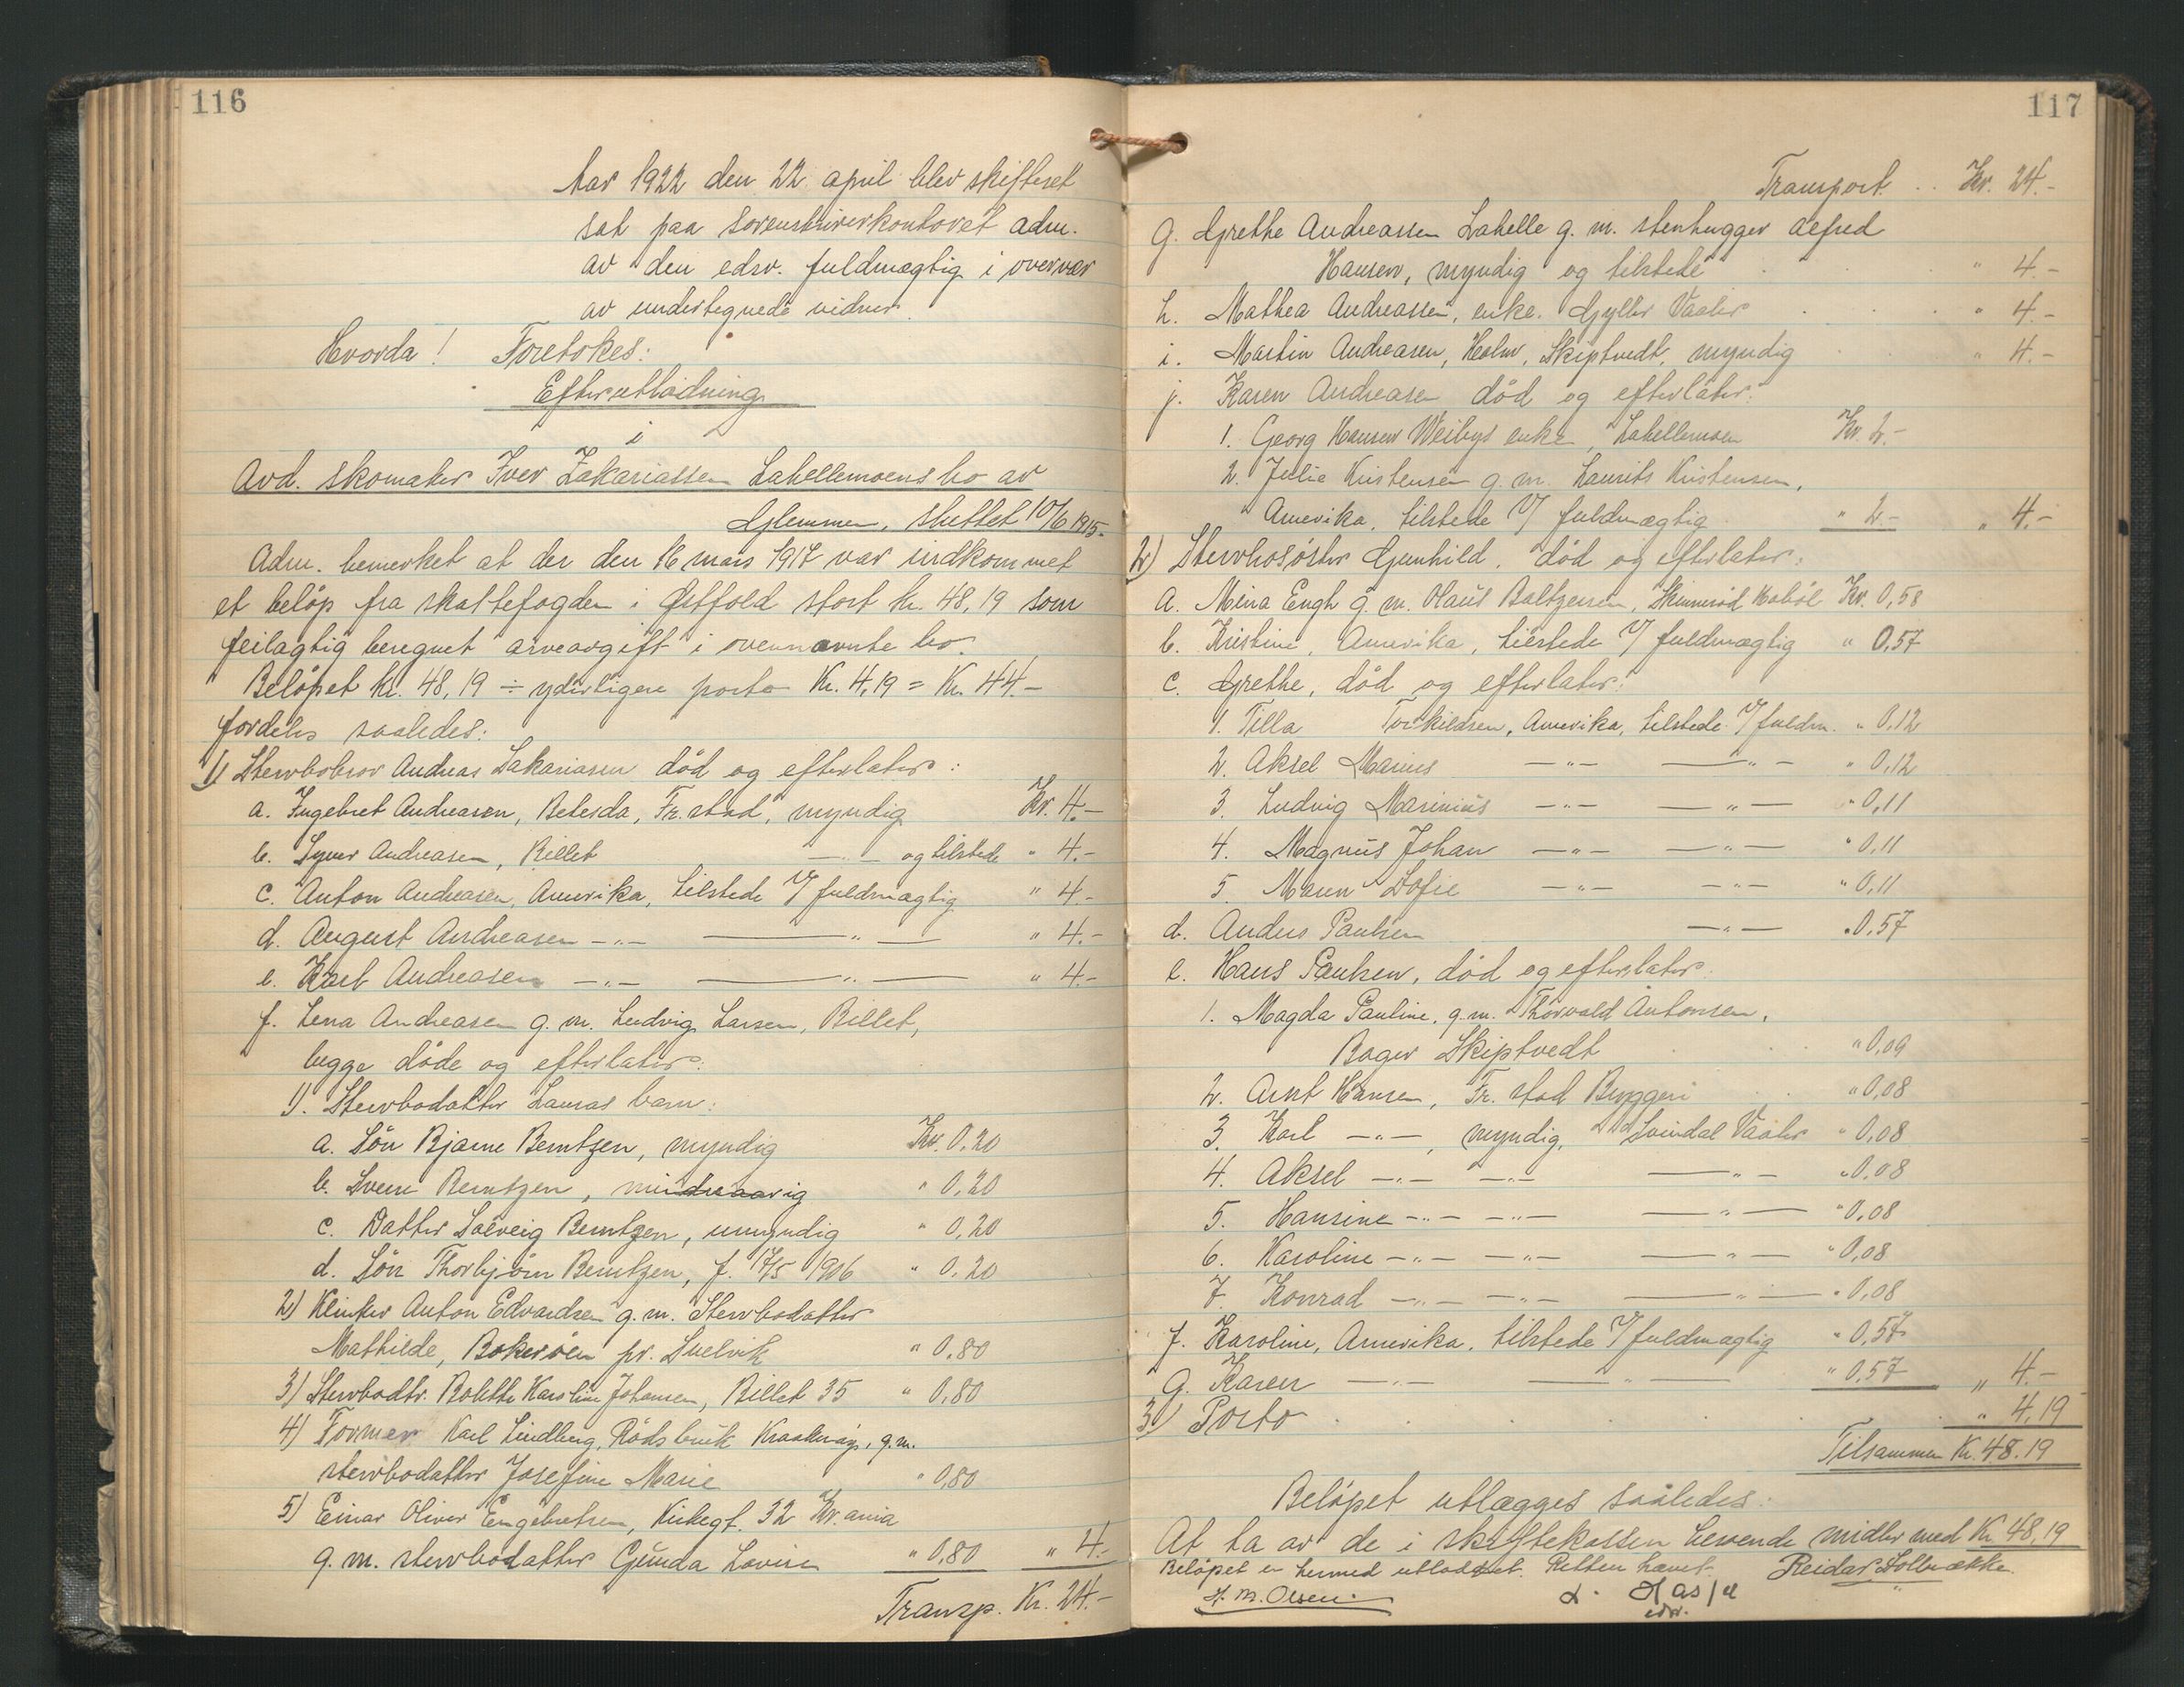 116
Aar 1922 den 22 april blev skifteret
sat paa sorenskriverkontoret adm.
av den edsv. fuldmægtig i overvær
av undertegnede vidner.
Hvorda! Foretokes:
Efterutlodning
i
Avd. skomaker Iver Zakariassen Lahellemoens bo av
Glemmen, sluttet 10/6 1915.
Adm. bemerket at der den 16 mars 1917 var indkommet
et beløp fra skattefogden i Østfold stort kr. 48,19 som
feilagtig beregnet arveavgift i ovennævnte bo.
Beløpet kr. 48,19 ÷ yderligere porto Kr. 4,19 = Kr. 44.-
fordeles saaledes:
1) Stervbobror Andreas Zakariasen død og efterlater:
a. Ingebret Andreasen, Betesda, Fr.stad, myndig Kr. 4.-
b. Syver Andreasen, Rillet —"— og tilstede " 4.-
c. Anton Andreasen, Amerika, tilstede v/ fuldmægtig " 4.-
d. August Andreasen —"— —"— " 4.-
e. Karl Andreasen —"— —"— " 4.-
f. Lena Andreasen g. m. Ludvig Larsen, Rillet,
begge døde og efterlater:
1). Stervbodatter Lauras barn:
a. Søn Bjarne Berntzen, myndig Kr. 0,20
b. Svein Berntzen, mindreaarig " 0,20
c. Datter Solveig Berntzen, umyndig " 0,20
d. Søn Thorbjørn Berntzen, f. 17/5 1906 " 0,20
2) Klinker Anton Edvardsen g. m. Stervbodatter
Mathilde, Bokerøen pr. Svelvik " 0,80
3) Stervbodtr. Bolette Karoline Johansen, Rillet 35 " 0,80
4) Former Karl Lindberg, Røds bruk Kraakerøy, g.m.
stervbodatter Josefine Marie " 0,80
5) Einar Oliver Engebretsen, Kirkegt. 32 Kr.ania
g. m. stervbodatter Gunda Lovise " 0,80 " 4.-
Transp. Kr. 24.-
117
Transport .. Kr. 24.-
g. Grethe Andreassen Lahelle g. m. stenhugger Alfred
Hansen, myndig og tilstede " 4.-
h. Mathea Andreassen, enke. Gyller Vaaler " 4.-
i. Martin Andreasen, Holm, Skiptvedt, myndig " 4.-
j. Karen Andreasen død og efterlater:
1. Georg Hansen Weibys enke, Lahellemoen Kr. 2.-
2. Julie Kristensen g. m. Laurits Kristensen,
Amerika, tilstede v/ fuldmægtig " 2.- " 4.-
2) Stervbosøster Gunhild. død og efterlater:
a. Mina Engh g. m. Olaus Baltzersen, Skinnerød Hobøl Kr. 0,58
b. Kristine, Amerika, tilstede v/ fuldmægtig " 0,57
c. Grethe, død og efterlater:
1. Tilla Torkildsen, Amerika, tilstede v/ fuldm. " 0,12
2. Aksel Marius —"— —"— " 0,12
3. Ludvig Marinius —"— —"— " 0,11
4. Magnus Johan —"— —"— " 0,11
5. Maren Sofie —"— —"— " 0,11
d. Anders Paulsen —"— " 0,57
e. Hans Paulsen, død og efterlater:
1. Magda Pauline, g.m. Thorvald Antonsen,
Bager Skiptvedt " 0,09
2. Arnt Hansen, Fr. stad Bryggeri " 0,08
3. Karl —"—, myndig, Svindal Vaaler " 0,08
4. Aksel —"— —"— —"— " 0,08
5. Hansine —"— —"— —"— " 0,08
6. Karoline —"— —"— —"— " 0,08
7. Konrad —"— —"— —"— " 0,08
f. Karoline, Amerika, tilstede v/ fuldmægtig " 0,57
g. Karen —"— —"— " 0,57 " 4.-
3) Porto " 4,19
Tilsammen Kr. 48.19
Beløpet utlægges saaledes:
At ta av de i skiftekassen beroende midler med Kr 48,19
Beløpet er hermed utloddet. Retten hævet. Reidar Solbrække.
H. M. Olsen
edsv.